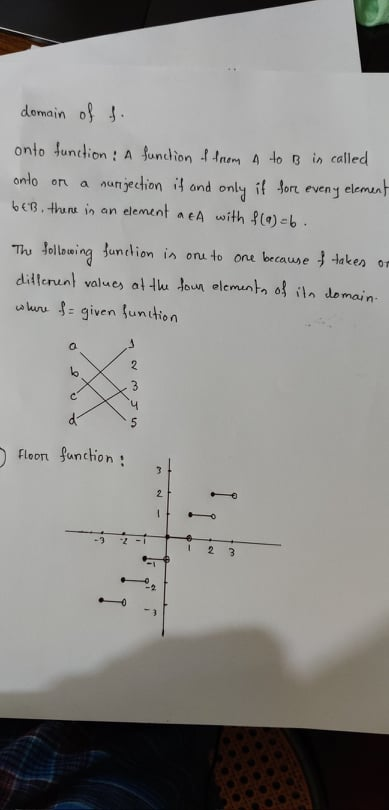 domain of f.
onto function: A function f from A to B is called
onto or a surjection if and only if for every element
b∈B, there is an element a∈A with f(a)=b.
The following function is one to one because f takes on
different values at the four elements of its domain.
where f = given function
a 1
b 2
c 3
d 4
5
Floor function:
3
2
1
-3 -2 -1 1 2 3
-1
-2
-3